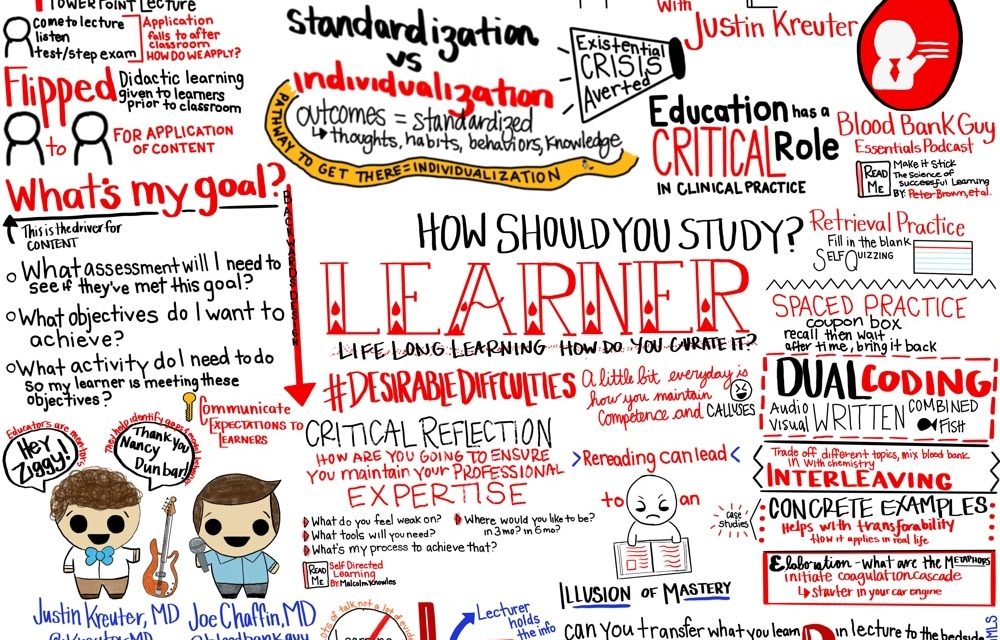 POWERPOINT Lecture
come to lecture
listen
test/step exam
Application
falls to after
classroom
HOW DO WE APPLY?
Flipped
Didactic learning
given to learners
prior to classroom
to
FOR APPLICATION
OF CONTENT
standardization
vs
individualization
outcomes = standardized
thoughts, habits, behaviors, knowledge
PATHWAY TO GET THERE=INDIVIDUALIZATION
Existential
CRISIS
Averted
With
Justin Kreuter
Education has a
CRITICAL Role
IN CLINICAL PRACTICE
Blood Bank Guy
Essentials Podcast
READ
ME
Make it Stick
The Science of
successful Learning
BY: Peter Brown, et al.
What's my goal?
This is the driver for
CONTENT
What assessment will I need to
see if they've met this goal?
What objectives do I want to
achieve?
What activity do I need to do
so my learner is meeting these
objectives?
BACKWARDS DESIGN
Communicate
EXPECTATIONS TO
LEARNERS
HOW SHOULD YOU STUDY?
LEARNER
LIFE LONG LEARNING HOW DO YOU CURATE IT?
#DESIRABLE DIFFCULTIES
A little bit everyday is
how you maintain
competence and CALLUSES
CRITICAL REFLECTION
HOW ARE YOU GOING TO ENSURE
YOU maintain your PROFESSIONAL
EXPERTISE
What do you feel weak on?
What tools will you need?
What's my process to achieve that?
Where would you like to be?
in 3mo? in 6mo?
READ
ME
Self Directed
Learning
BY: Malcolm Knowles
Rereading can lead
to an
ILLUSION OF MASTERY
Retrieval Practice
Fill in the blank
SELF QUIZZING
SPACED PRACTICE
coupon box
recall then wait
after time, bring it back
DUAL CODING
Audio
Visual
WRITTEN
COMBINED
FISH
Trade off different topics, mix blood bank
IN with chemistry
INTERLEAVING
case
studies
CONCRETE EXAMPLES
Helps with transforability
How it applies in real life
Elaboration - what are the METAPHORS
initiate coagulation cascade
starter in your car engine
Educators are mentors
Hey
Ziggy!
Thank you
Nancy
Dunbar!
Justin Kreuter, MD
@KreuterMD
Joe Chaffin, MD
@bloodbankguy
Learning
Lecturer
holds
the info
can you transfer what you learn
in lecture to the bedside
MLS